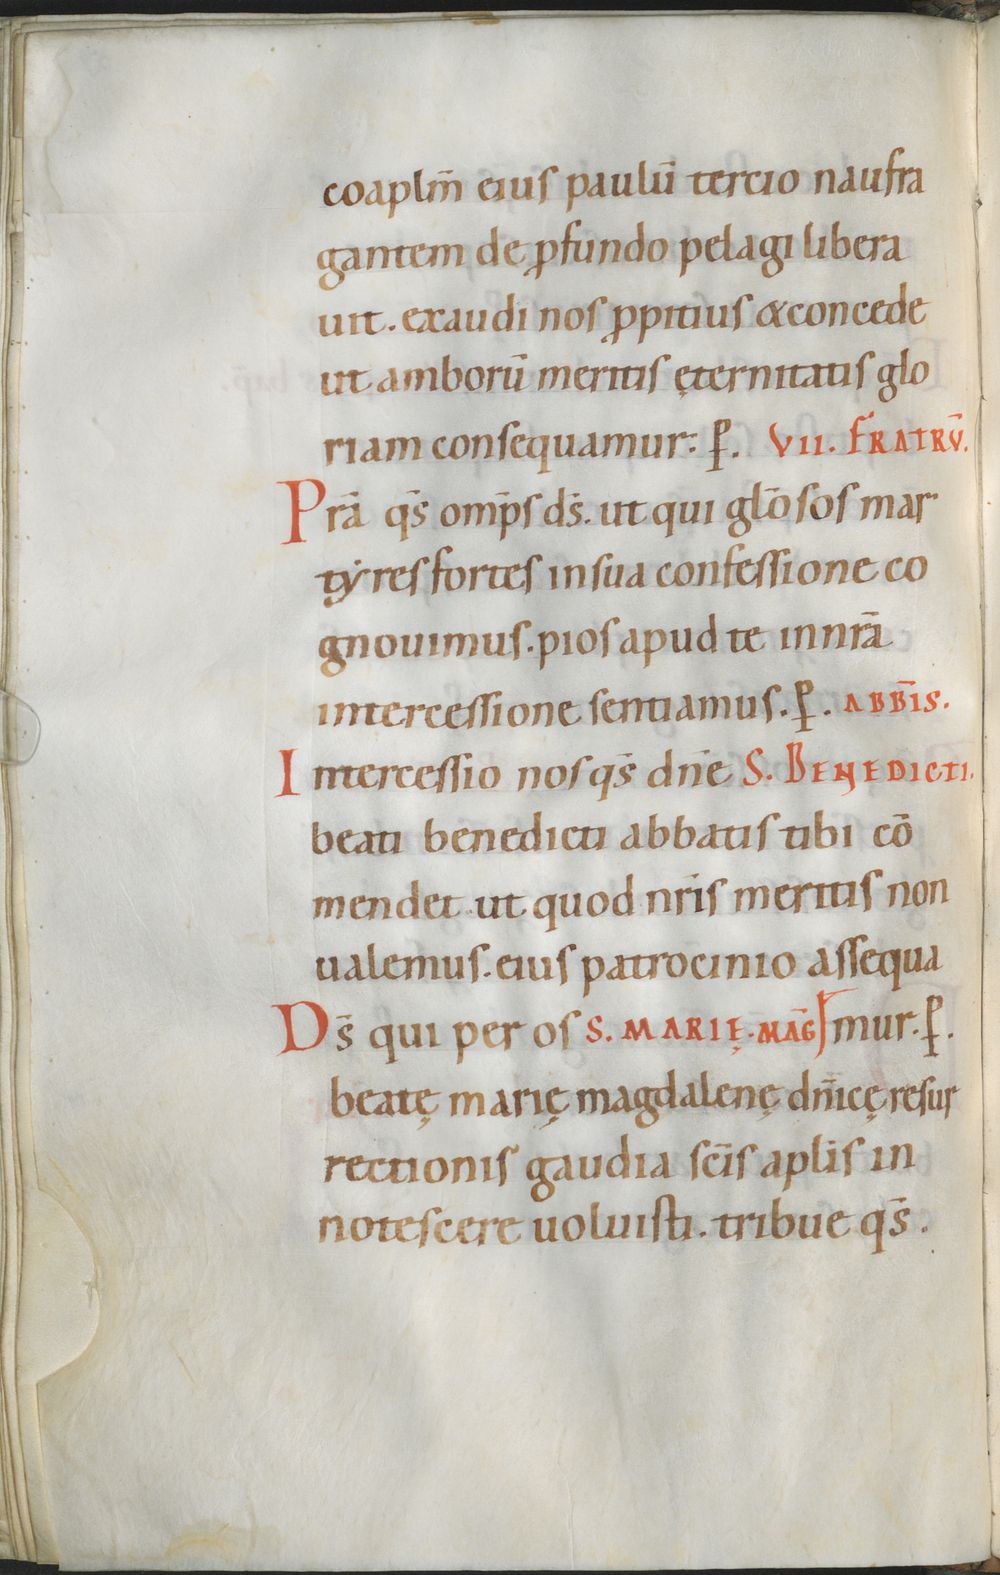 coaplm̄ eius paulū tercio naufra
gantem de ꝓfundo pelagi libera
uit. exaudi nos ꝓpitius & concede
ut amborū meritis ęternitatis glo
riam consequamur: ꝑ. VII. FRATRŪ.
Prā q̄s om̄ps ds̄. ut qui glōsos mar
tẏres fortes in sua confessione co
gnouimus. pios apud te in nrā
intercessione sentiamus. ꝑ. ABB̄IS.
Intercessio nos q̄s dn̄e S. BENEDICTI.
beati benedicti abbatis tibi cō
mendet. ut quod nr̄is meritis non
ualemus. eius patrocinio assequa
Ds̄ qui per os S. MARIĘ. MAḠ mur. ꝑ.
beatę marię magdalenę dn̄icę resur
rectionis gaudia sc̄is aplīs in
notescere uoluisti. tribue q̄s.